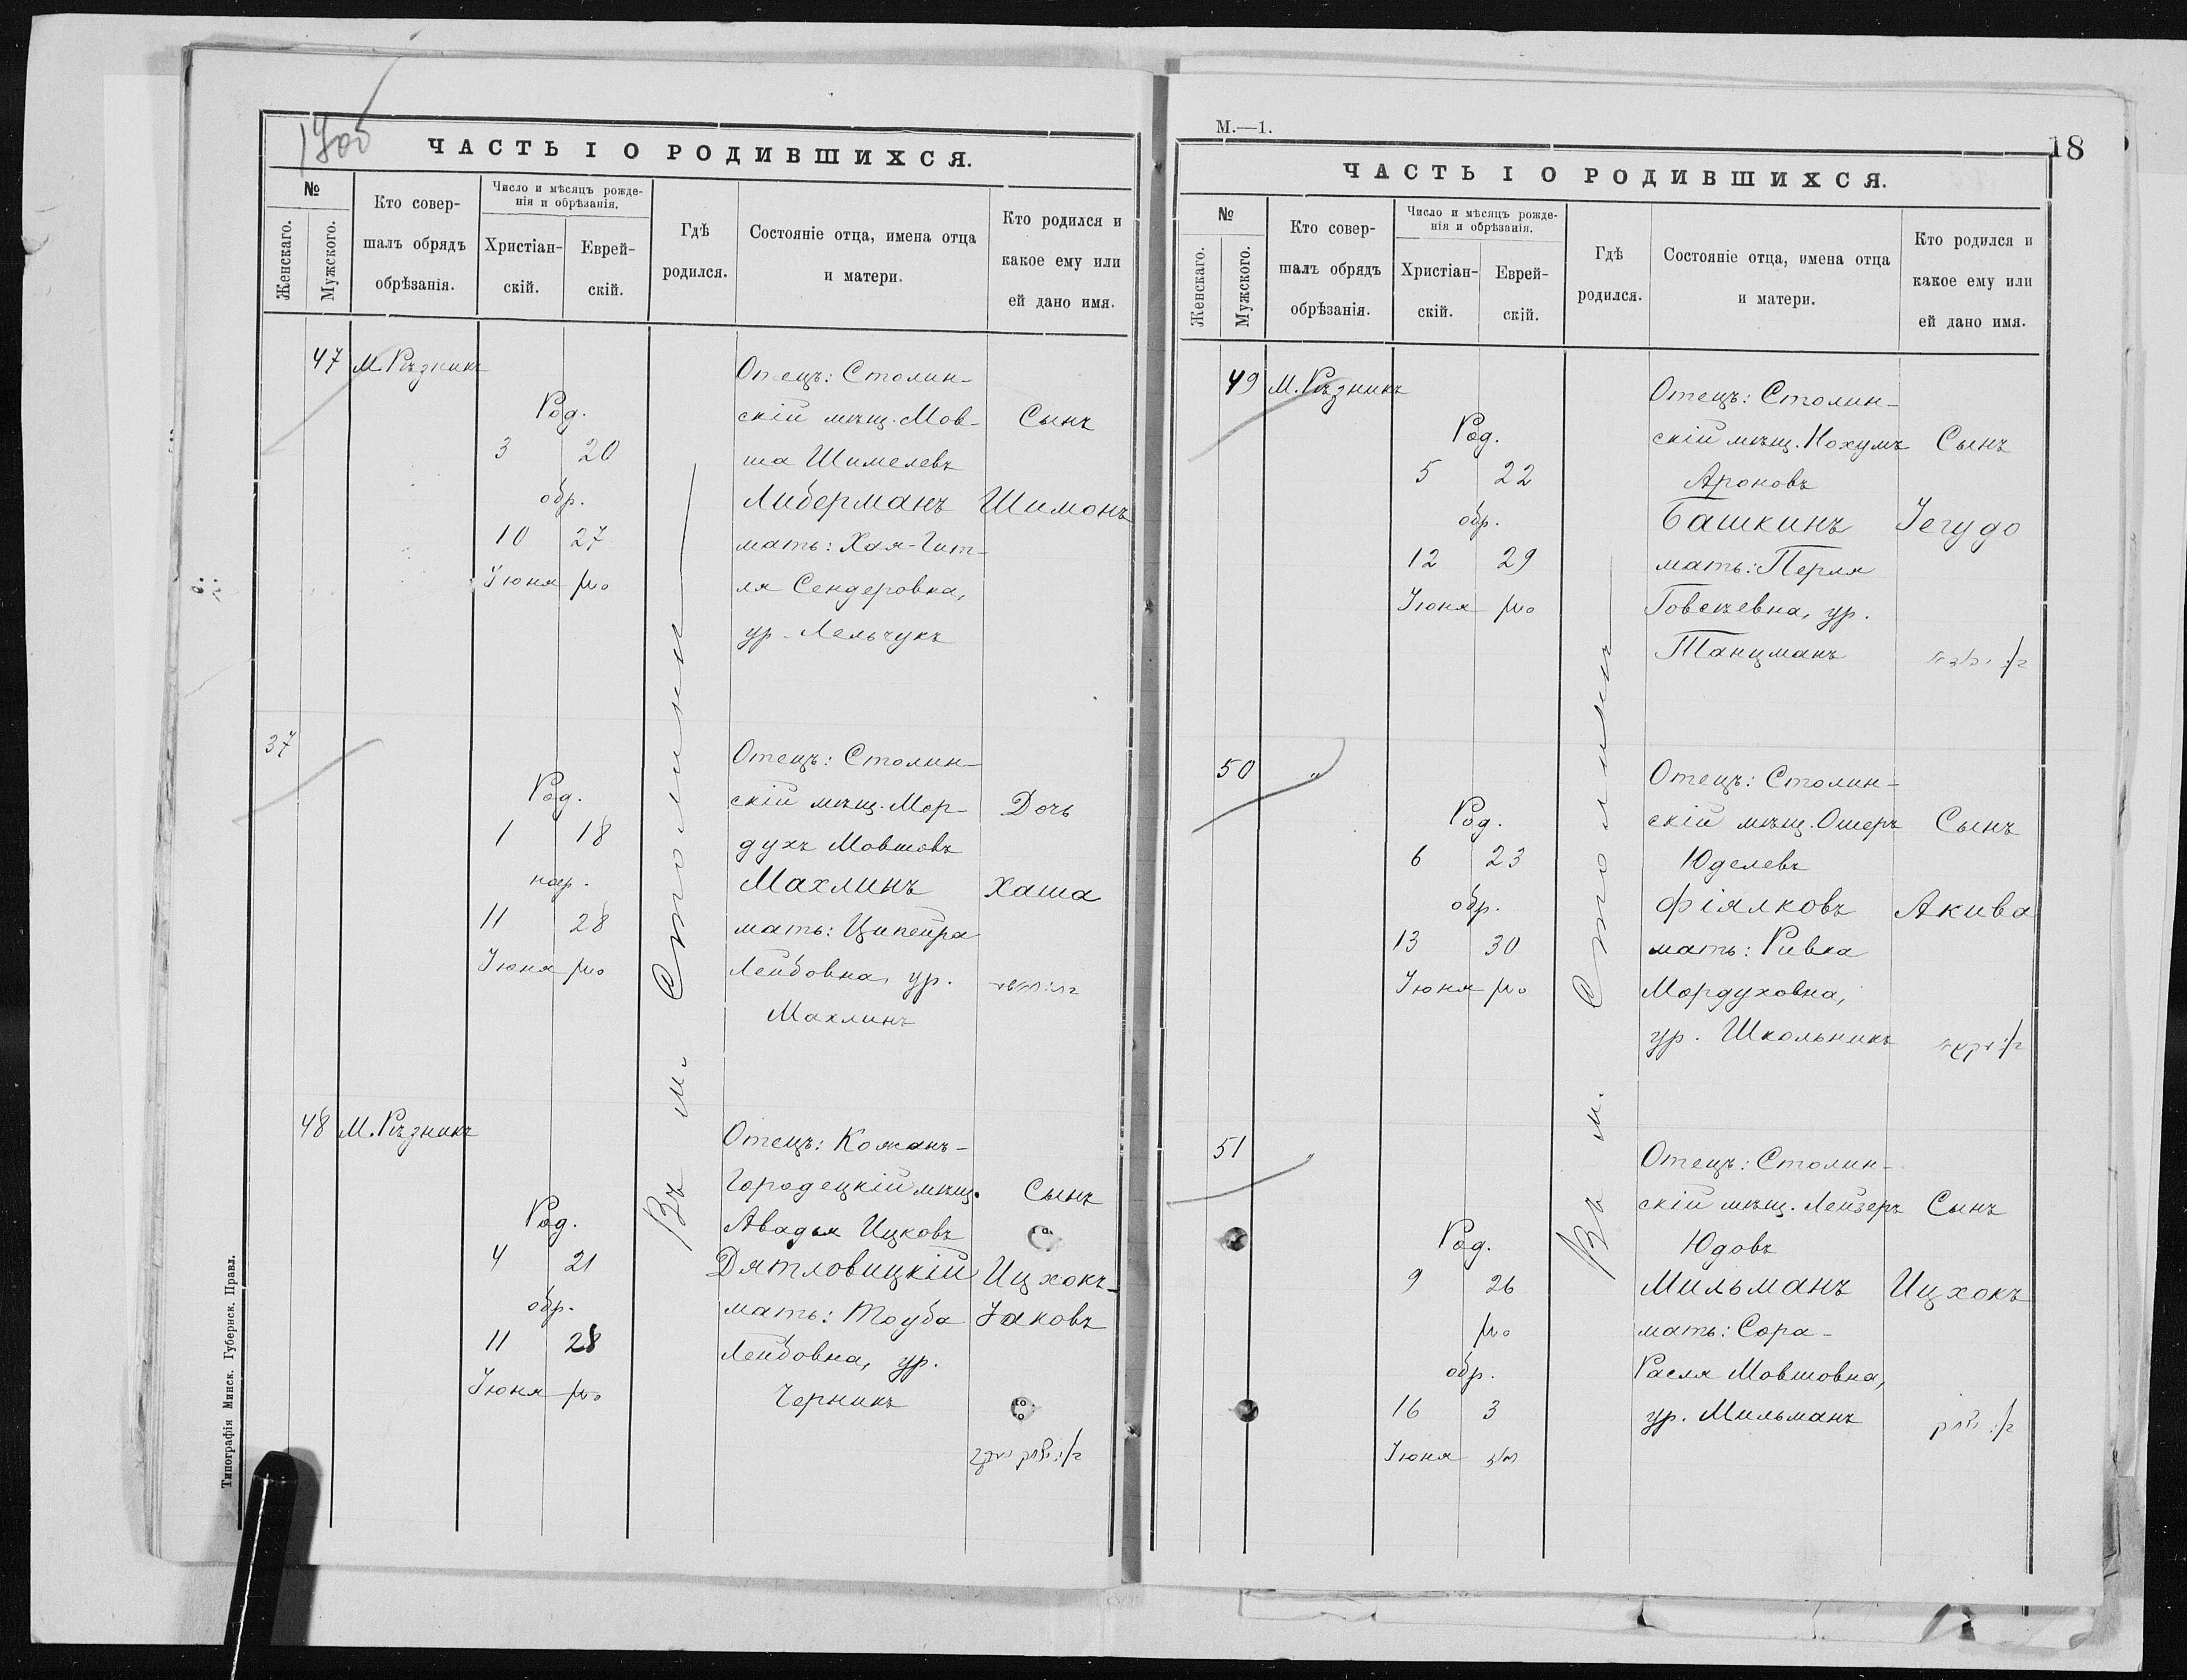 1900
ЧАСТЬ I О РОДИВШИХСЯ.
№
Женскаго.
Мужского.
Кто совер-
шалъ обрядъ
обрѣзанія.
Число и мѣсяцъ рожде-
нія и обрѣзанія.
Христіан-
скій.
Еврей-
скій.
Гдѣ
родился.
Состояніе отца, имена отца
и матери.
Кто родился и
какое ему или
ей дано имя.
47 М. Рѣзникъ
Отецъ: Столин-
Род.
скій мѣщ. Мов- Сынъ
3 20
ша Шимелевъ
обр.
Либерманъ Шимонъ
10 27
мать: Хая-Гит-
Іюня
ля Сендеровна,
ур. Лельчукъ
37
Отецъ: Столин-
Род.
скій мѣщ. Мор- Дочь
1 18
духъ Мовшовъ
нар.
Махлинъ Хаша
11 28
мать: Ципейра
Іюня
Лейбовна, ур.
Махлинъ
48 М. Рѣзникъ
Отецъ: Кожанъ-
Городецкій мѣщ. Сынъ
Род.
Авадья Ицковъ
4 21
Дятловицкій Ицхокъ-
обр.
мать: Тоуба Іаковъ
11 28
Лейбовна, ур.
Іюня
Черникъ
Въ м. Столинѣ
Типографія Минск. Губернск. Правл.
М.—1.
18
ЧАСТЬ I О РОДИВШИХСЯ.
№
Женскаго.
Мужского.
Кто совер-
шалъ обрядъ
обрѣзанія.
Число и мѣсяцъ рожде-
нія и обрѣзанія.
Христіан-
скій.
Еврей-
скій.
Гдѣ
родился.
Состояніе отца, имена отца
и матери.
Кто родился и
какое ему или
ей дано имя.
49 М. Рѣзникъ
Отецъ: Столин-
Род.
скій мѣщ. Нохумъ Сынъ
5 22
Ароновъ
обр.
Башкинъ Іегудо
12 29
мать: Перля
Іюня
ур.
Танцманъ
50 "
Отецъ: Столин-
Род.
скій мѣщ. Ошеръ Сынъ
6 23
Юделевъ
обр.
Фіялковъ Акива
13 30
мать: Ривка
Іюня
Мордуховна,
ур. Школьникъ
51 "
Отецъ: Столин-
скій мѣщ. Лейзеръ Сынъ
Род.
Юдовъ
9 26
Мильманъ Ицхокъ
мать: Сора-
обр.
Расля Мовшовна,
16 3
ур. Мильманъ
Іюня
Въ м. Столинѣ